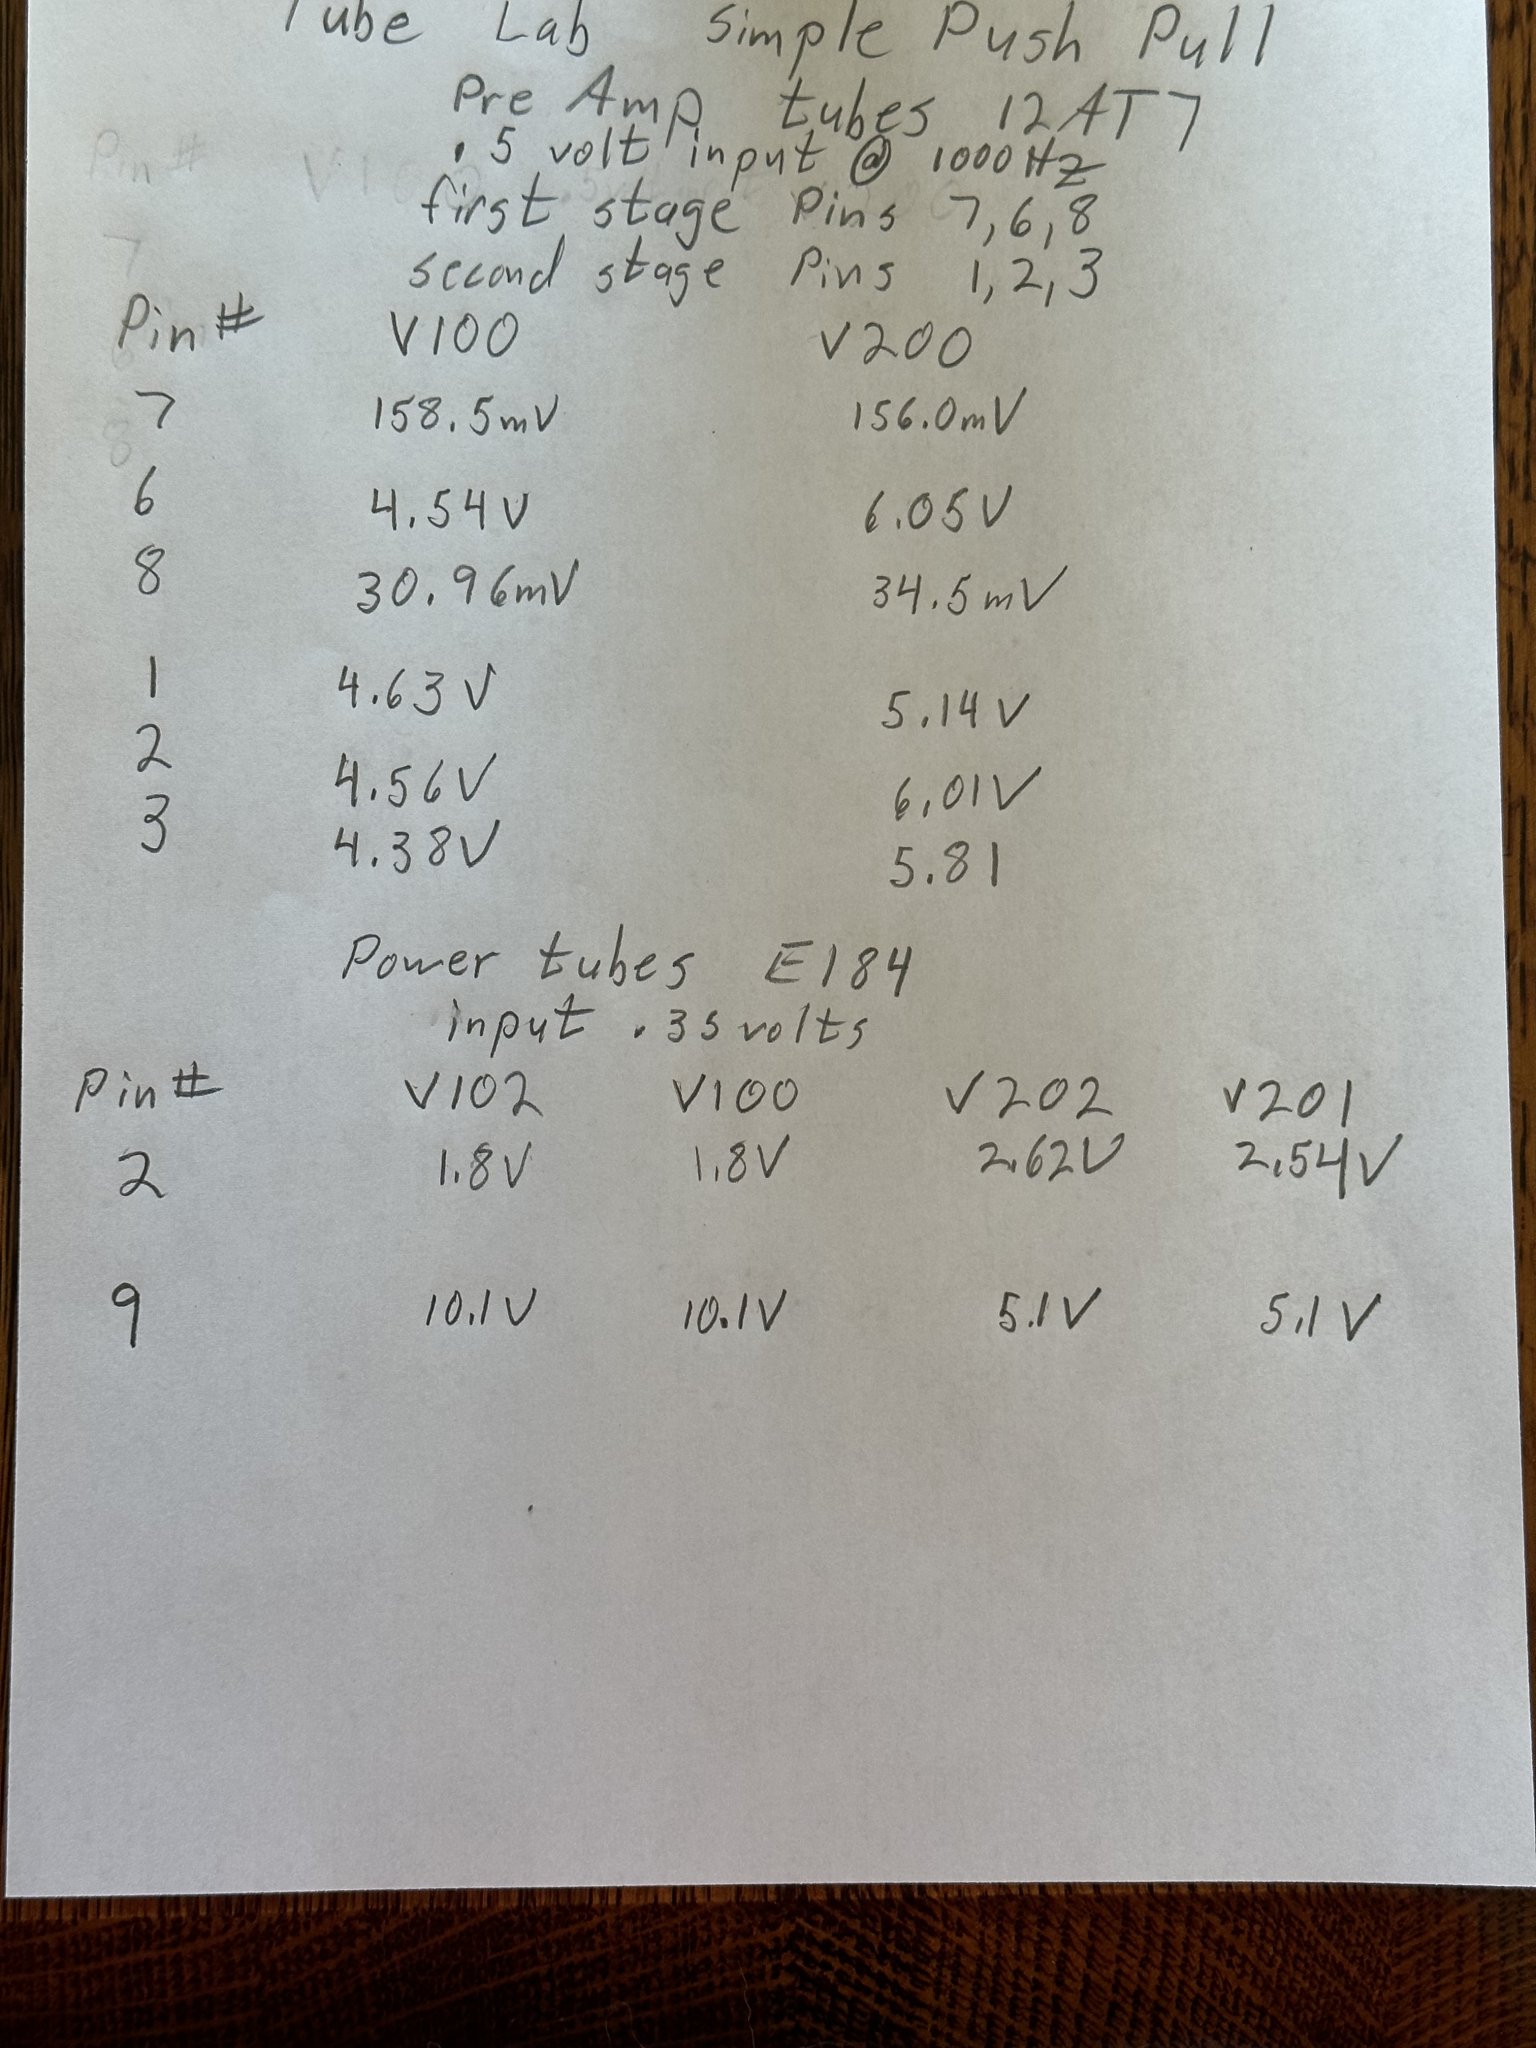 Tube Lab Simple Push Pull
Pre Amp tubes 12AT7
.5 volt input @ 1000Hz
first stage Pins 7,6,8
second stage Pins 1,2,3
Pin # V100 V200
7 158.5mV 156.0mV
6 4.54V 6.05V
8 30.96mV 34.5mV
1 4.63V 5.14V
2 4.56V 6.01V
3 4.38V 5.81
Power tubes E184
input .35volts
Pin # V102 V100 V202 V201
2 1.8V 1.8V 2.62V 2.54V
9 10.1V 10.1V 5.1V 5.1V